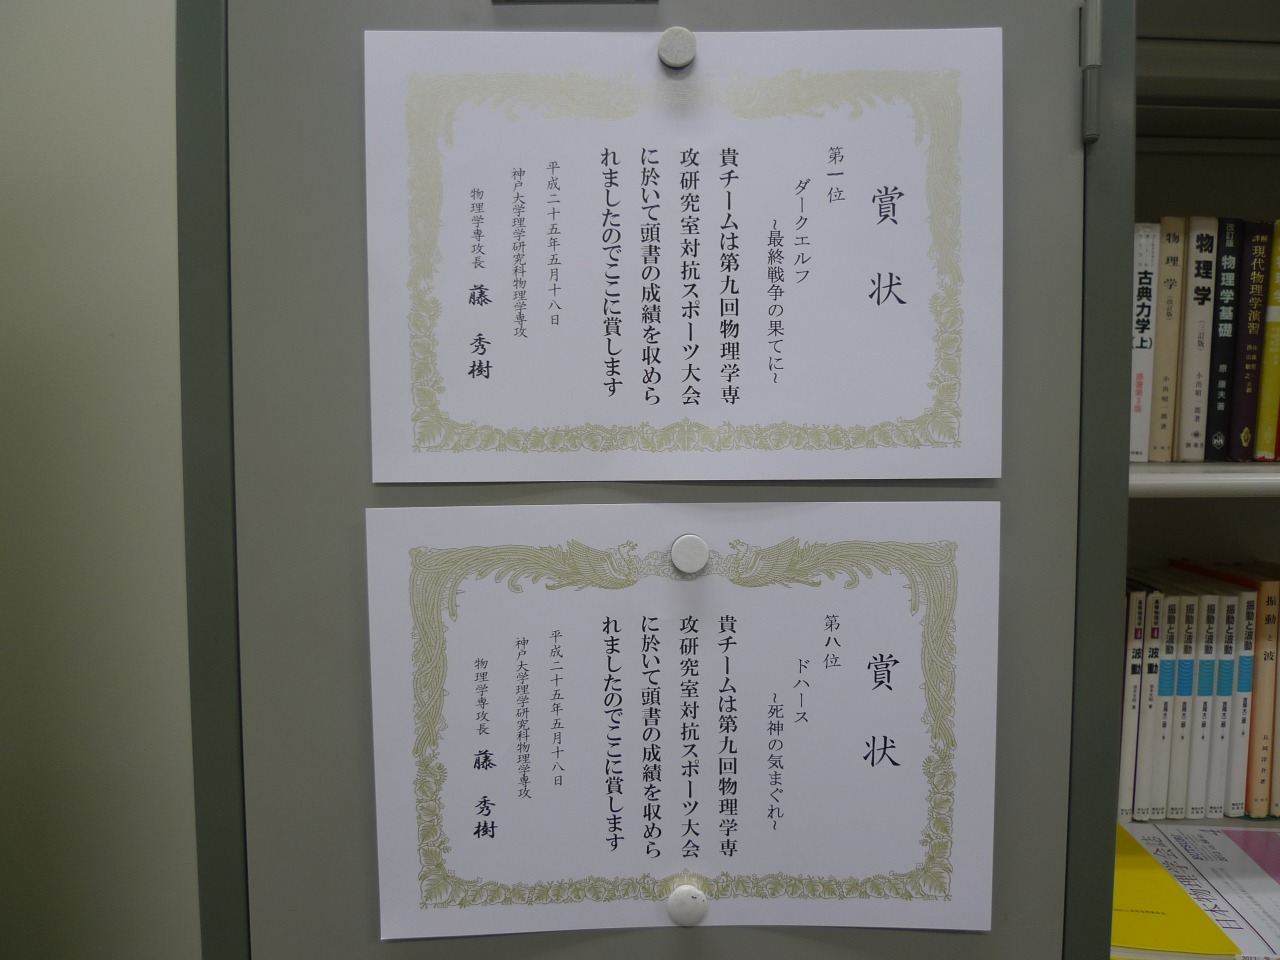 賞状
第一位
ダークエルフ
~最終戦争の果てに~
貴チームは第九回物理学専
攻研究室対抗スポーツ大会
に於いて頭書の成績を収めら
れましたのでここに賞します
平成二十五年五月十八日
神戸大学理学研究科物理学専攻
物理学専攻長 藤 秀樹
賞状
第八位
ドハース
~死神の気まぐれ~
貴チームは第九回物理学専
攻研究室対抗スポーツ大会
に於いて頭書の成績を収めら
れましたのでここに賞します
平成二十五年五月十八日
神戸大学理学研究科物理学専攻
物理学専攻長 藤 秀樹
古典力学(上)
原著第3版
物理学
(改訂版)
小出昭一郎著
物理学
(三訂版)
小出昭一郎著
改訂版 物理学基礎
原 康夫著
詳解 現代物理学演習
波動
波動
振動と波動
振動と波動
振動と波動
振動と波動
振動と波
長岡洋介著
日本物理学会誌